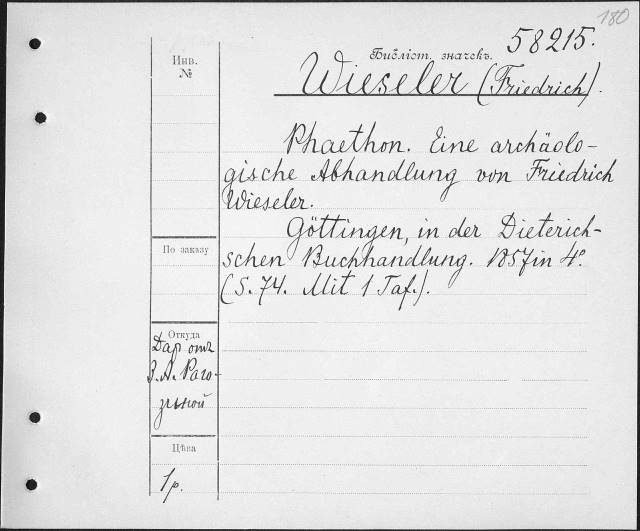 180
58215.
Инв.
№
Библіот. значекъ.
Wieseler (Friedrich).
Phaethon. Eine archäolo-
gische Abhandlung von Friedrich
Wieseler.
Göttingen, in der Dieterich-
schen Buchhandlung. 1857 in 4º.
(S. 74. Mit 1 Taf.).
По заказу
Откуда
Даръ отъ
З. А. Раго-
зиной
Цѣна
1 р.